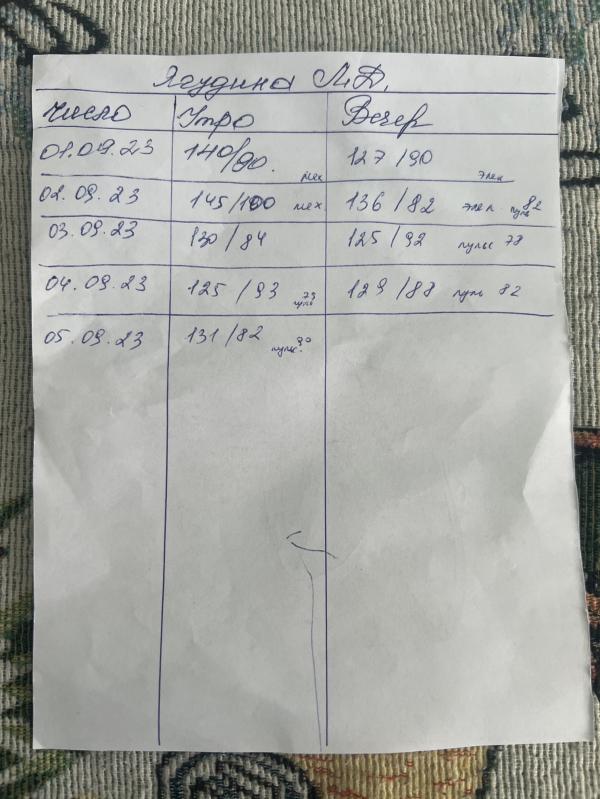 Ягудина М.Д.
Число Утро Вечер
01.09.23 140/90. мех 127/90 элек
02.09.23 145/100 мех 136/82 элек пульс 82
03.09.23 130/84 125/92 пульс 78
04.09.23 125/93 пульс 79 129/88 пуль 82
05.09.23 131/82 пульс. 90